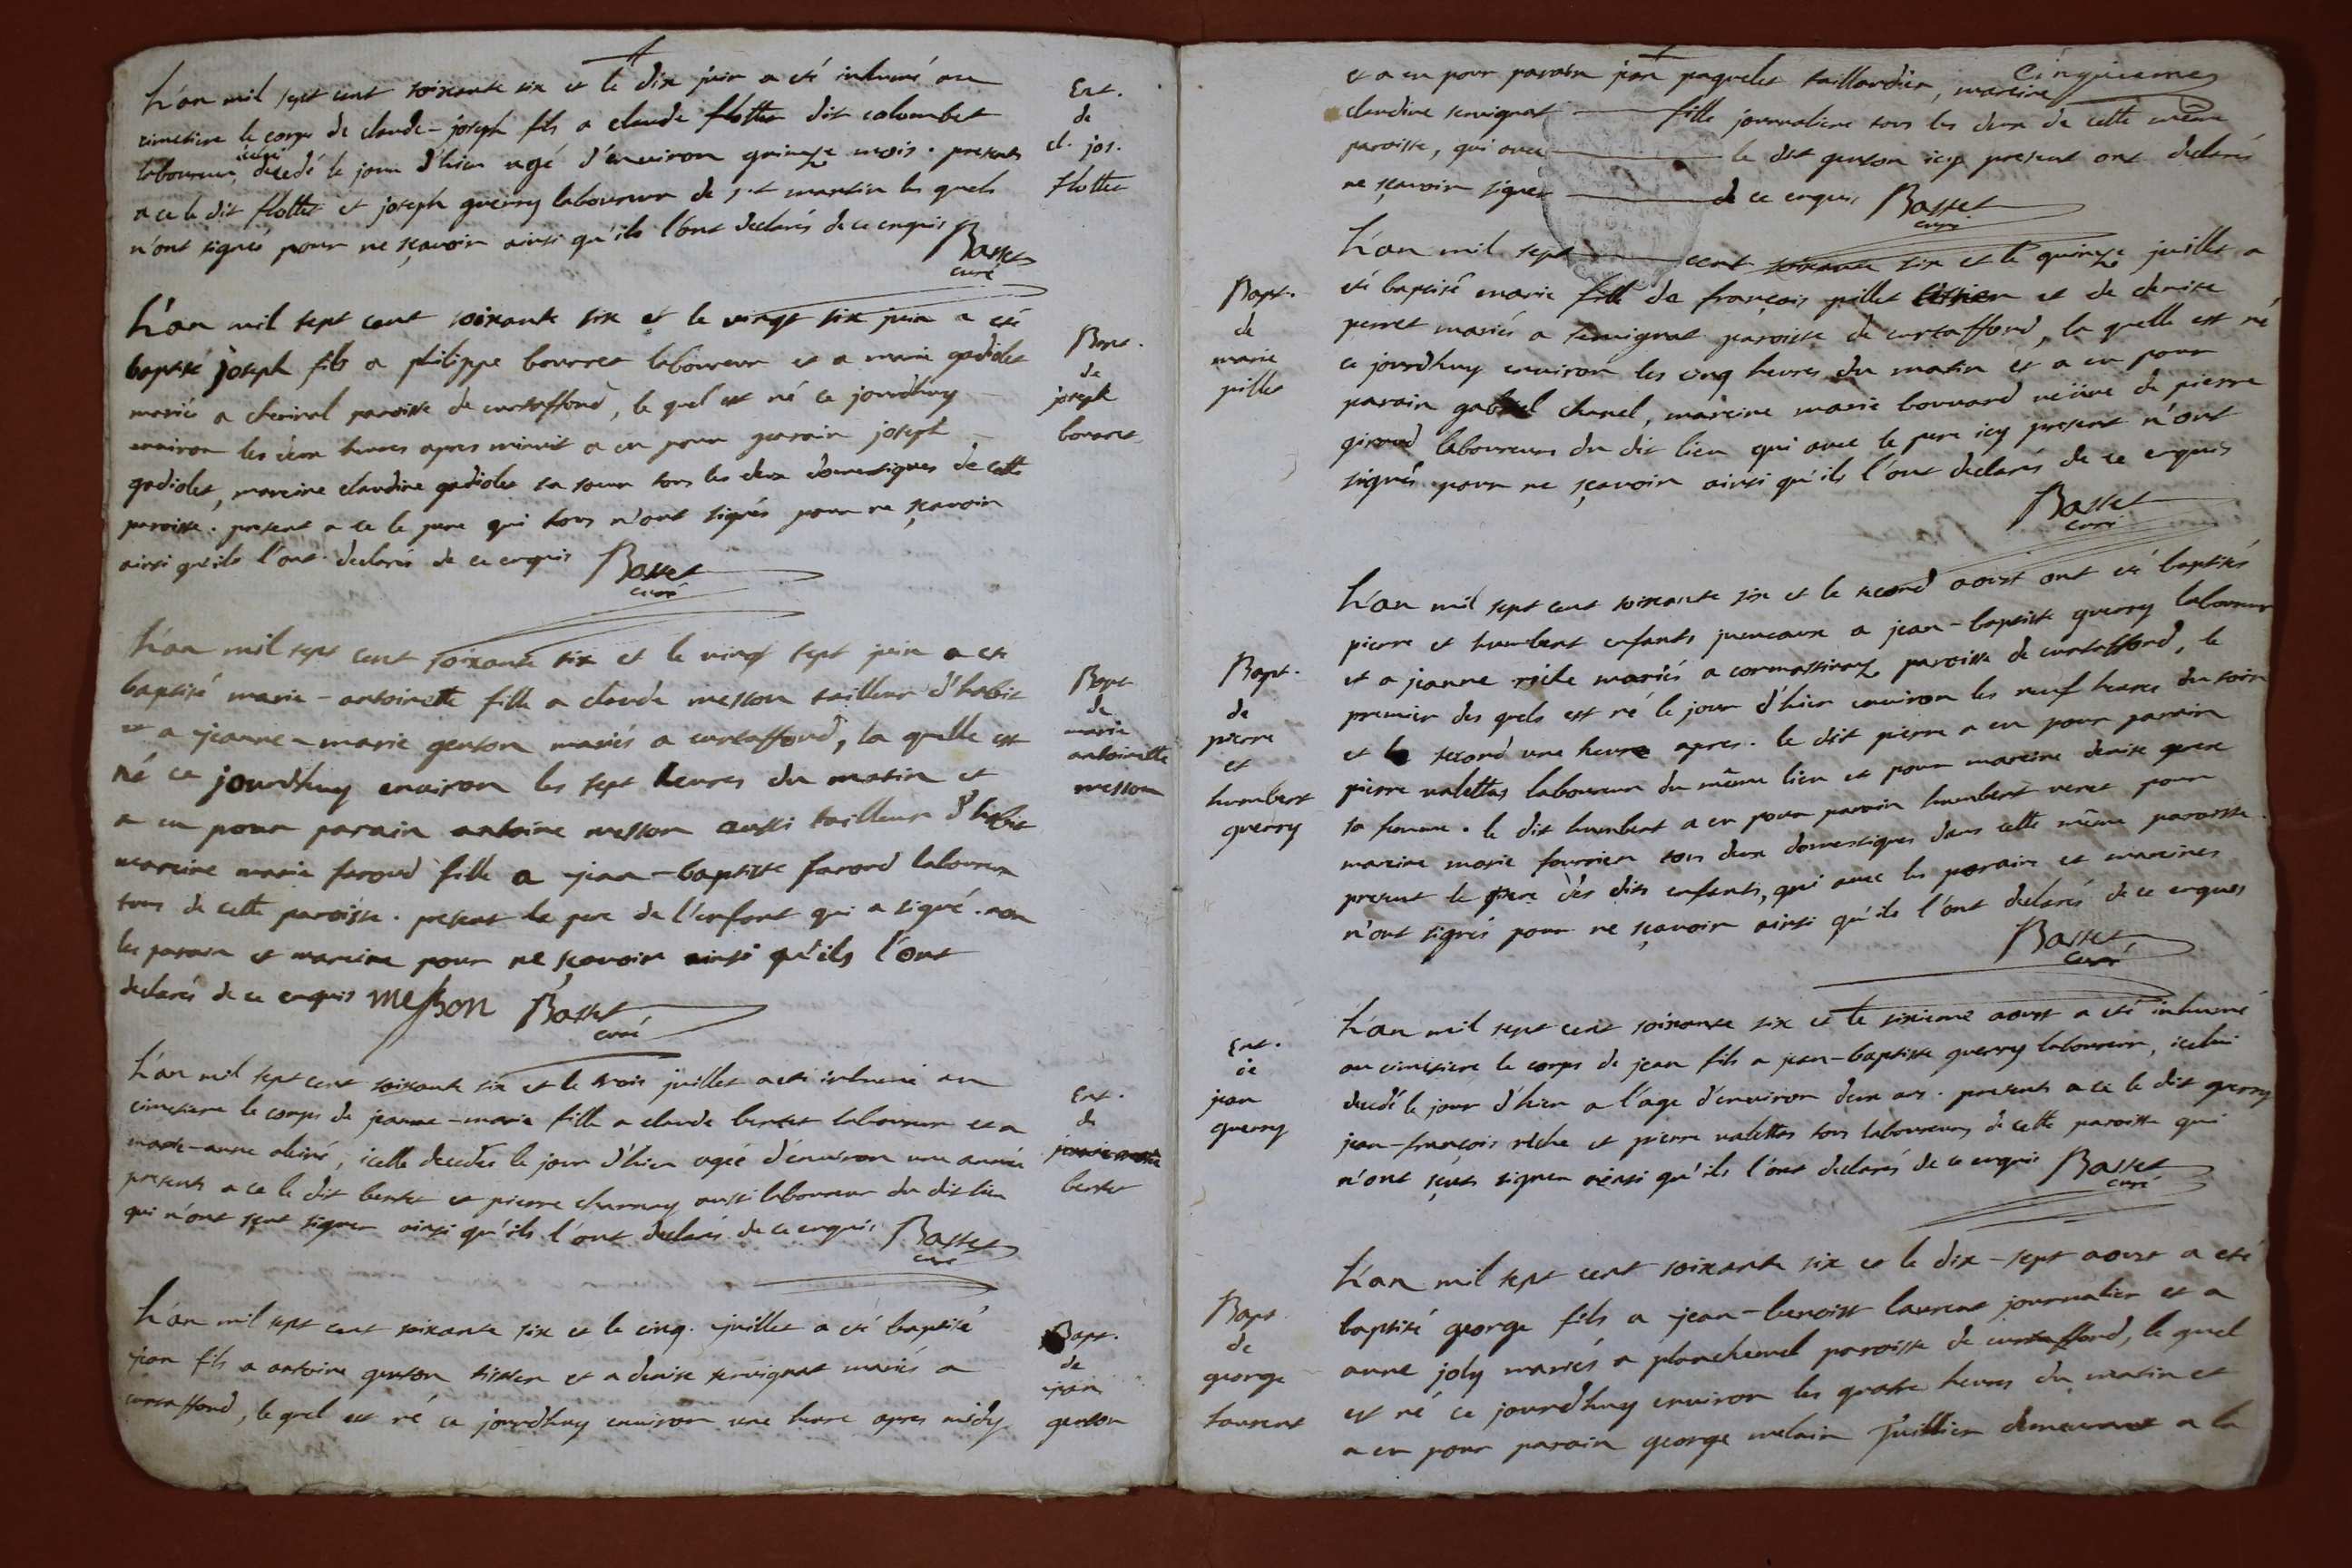 L'an mil sept cent soixante six et le dix juin a été inhumé au
cimetiere le corps de claude-joseph fils a claude flottet dit colombet
laboureur, icelui decedé le jour d'hier agé d'environ quinze mois. presents
a ce le dit flottet et joseph guerry laboureur de st martin les quels
n'ont signés pour ne sçavoir ainsi qu'ils l'ont declarés de ce enquis Basset
curé
Ent.
de
cl. jos.
flottet
L'an mil sept cent soixante six et le vingt six juin a été
baptisé joseph fils a philippe bourret laboureur et a marie gadiolet
mariés a cherinal paroisse de curtaffond, le quel est né ce jourdhuy
environ les deux heures apres minuit a eu pour parain joseph
gadiolet, mareine claudine gadiolet sa soeur tous les deux domestiques de cette
paroisse. present a ce le pere qui tous n'ont signés pour ne sçavoir
ainsi qu'ils l'ont declarés de ce enquis Basset
curé
Bapt.
de
joseph
bourret
L'an mil sept cent soixante six et le vingt sept juin a eté
baptisé marie-antoinette fille a claude messon tailleur d'habit
et a jeanne-marie genton mariés a curtaffond, la quelle est
né ce jourdhuy environ les sept heures du matin et
a eu pour parain antoine messon aussi tailleur d'habit
mareine marie faroud fille a jean-baptiste farond laboureur
tous de cette paroisse. present le pere de l'enfant qui a signé. non
les parain et mareine pour ne sçavoir ainsi qu'ils l'ont
declarés de ce enquis messon Basset
curé
Bapt
de
marie
antoinette
messon
L'an mil sept cent soixante six et le trois juillet a eté inhumé au
cimetiere le corps de jeanne-marie fille a claude bertet laboureur et a
marie-anne , icelle decedée le jour d'hier agée d'environ une année
presents a ce le dit bertet et pierre charnay aussi laboureur du dit lieu
qui n'ont sçut signer ainsi qu'ils l'ont declarés de ce enquis Basset
curé
Ent.
de
jeanne-marie
bertet
L'an mil sept cent soixante six et le cinq juillet a été baptisé
jean fils a antoine genton tissier et a denise servignat mariés a
curtaffond, le quel est né ce jourdhuy environ une heure apres midy
Bapt.
de
jean
genton
Cinquieme
et a eu pour parain jean paquelet taillandier, mareine
claudine servignat fille journaliere tous les deux de cette même
paroisse, qui avec le dit genton icy present ont declarés
ne sçavoir signer de ce enquis Basset
curé
L'an mil sept cent soixante six et le quinze juillet a
été baptisé marie fille de françois pillet tissier et de denise
perret mariés a servignat paroisse de curtaffond, la quelle est né
ce jourdhuy environ les cinq heures du matin et a eu pour
parain gabriel chanel, mareine marie bouvard veüve de pierre
giroud laboureurs du dit lieu qui avec le pere icy present n'ont
signés pour ne sçavoir ainsi qu'ils l'ont declarés de ce enquis
Basset
curé
Bapt.
de
marie
pillet
L'an mil sept cent soixante six et le second aoust ont été baptisés
pierre et humbert enfants jumeaux a jean-baptiste guerry laboureur
et a jeanne riche mariés a cormassinaz paroisse de curtaffond, le
premier des quels est né le jour d'hier environ les neuf heures du soir
et le second une heure apres. le dit pierre a eu pour parain
pierre valettas laboureur du même lieu et pour mareine denise
sa femme. le dit humbert a eu pour parain humbert veret pour
mareine marie fournier tous deux domestiques dans cette même paroisse.
present le pere des dits enfants, qui avec les parains et mareines
n'ont signés pour ne sçavoir ainsi qu'ils l'ont declarés de ce enquis
Basset
curé
Bapt.
de
pierre
et
humbert
guerry
L'an mil sept cent soixante six et le sixieme aoust a été inhumé
au cimetiere le corps de jean fils a jean-baptiste guerry laboureur, icelui
decedé le jour d'hier a l'age d'environ deux ans. presents a ce le dit guerry
jean-françois riche et pierre valettas tous laboureurs de cette paroisse qui
n'ont sçuts signer ainsi qu'ils l'ont declarés de ce enquis Basset
curé
Ent.
de
jean
guerry
L'an mil sept cent soixante six et le dix-sept aoust a été
baptisé george fils a jean-benoist laurent journalier et a
anne joly mariés a planchemel paroisse de curtaffond, le quel
est né ce jourdhuy environ les quatre heures du matin et
a eu pour parain george demeurant a la
Bapt
de
george
laurent